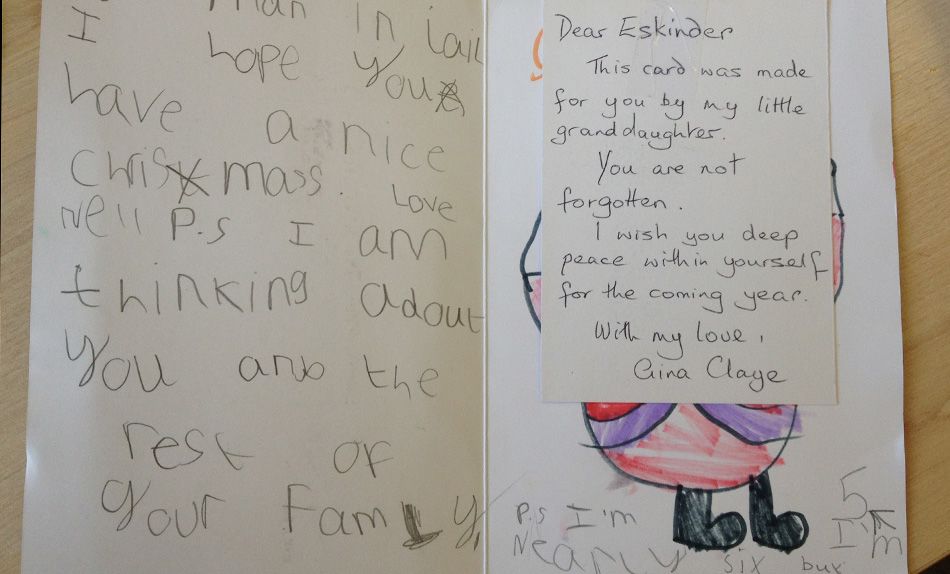 man in jail
I hope you
have a nice
Chrismass. Love
Nell P.S I am
thinking adout
you anb the
rest of
your Family,
Dear Eskinder
This card was made
for you by my little
granddaughter.
You are not
forgotten.
I wish you deep
peace within yourself
for the coming year.
With my love,
Gina Claye
P.s I'm
Nearly six but
I'm
5